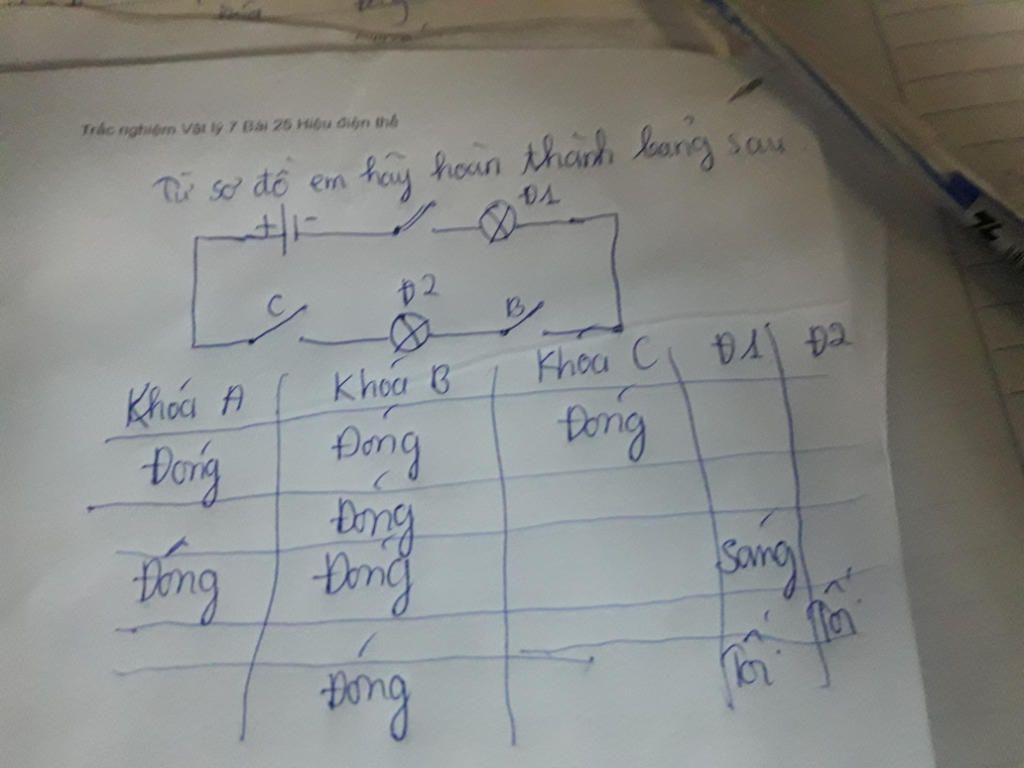 Trắc nghiệm Vật lý 7 Bài 25 Hiệu điện thế
Từ sơ đồ em hãy hoàn thành bảng sau
+ - Đ1
C Đ2 B
Khóa A Khóa B Khóa C Đ1 Đ2
Đóng Đóng Đóng
Đóng
Đóng Đóng Sáng
Tối
Đóng Tối